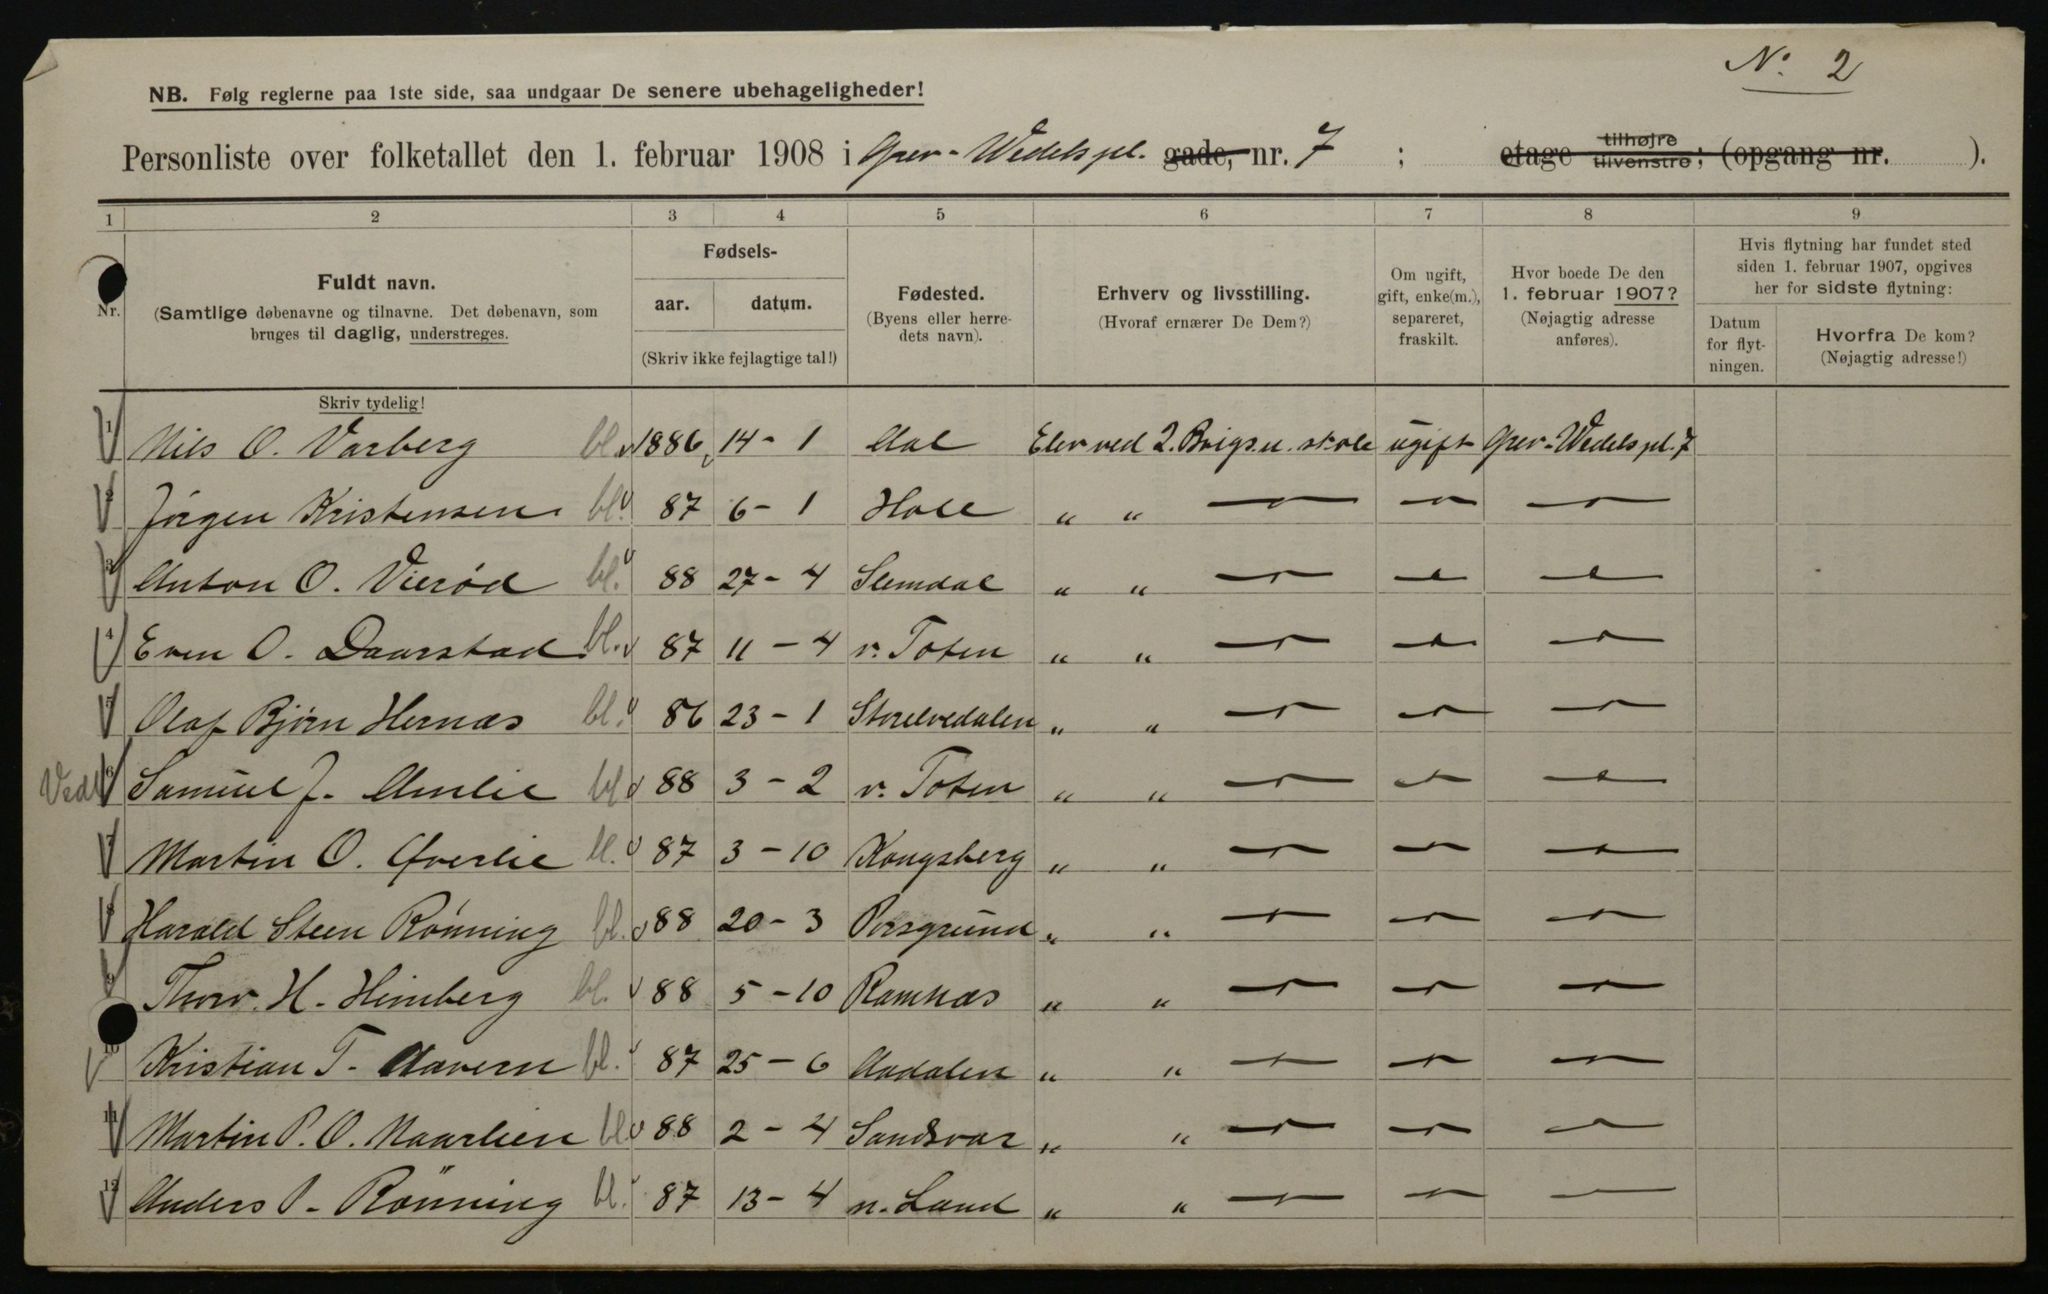 No. 2
NB. Følg reglerne paa 1ste side, saa undgaar De senere ubehageligheder!
Personliste over folketallet den 1. februar 1908 i Grev-Wedels pl. gade, nr. 7 ; etage tilhøjre tilvenstre; (opgang nr. ).
1 2 3 4 5 6 7 8 9
Nr.
Fuldt navn.
(Samtlige døbenavne og tilnavne. Det døbenavn, som
bruges til daglig, understreges.
Fødsels-
aar. datum.
(Skriv ikke fejlagtige tal!)
Fødested.
(Byens eller herre-
dets navn).
Erhverv og livsstilling.
(Hvoraf ernærer De Dem?)
Om ugift,
gift, enke(m.),
separeret,
fraskilt.
Hvor boede De den
1. februar 1907?
(Nøjagtig adresse
anføres).
Hvis flytning har fundet sted
siden 1. februar 1907, opgives
her for sidste flytning:
Datum
for flyt-
ningen.
Hvorfra De kom?
(Nøjagtig adresse!)
Skriv tydelig!
1 Nils O. Varberg bl. 1886 14-1 Aal Elev ved 2. Brigs. u. skole ugift Grev-Wedels pl. 7
2 Jörgen Kristensen bl. 87 6-1 Hole " " — — —
3 Anton O. Vierød bl. 88 27-4 Slemdal " " — — —
4 Even O. Daarstad bl. 87 11-4 v. Toten " " — — —
5 Olaf Bjørn Hernæs bl. 86 23-1 Storelvedalen " " — — —
6 Samuel J. Amlie bl. 88 3-2 v. Toten " " — — —
7 Martin O. Øverlie bl. 87 3-10 Kongsberg " " — — —
8 Harald Steen Rönning bl. 88 20-3 Porsgrund " " — — —
9 Thorv. H. Himberg bl. 88 5-10 Ramnæs " " — — —
10 Kristian T. Aavern bl. 87 25-6 Aadalen " " — — —
11 Martin P. O. Maarlien bl. 88 2-4 Sandsvær " " — — —
12 Anders P. Rönning bl. 87 13-4 n. Land " " — — —